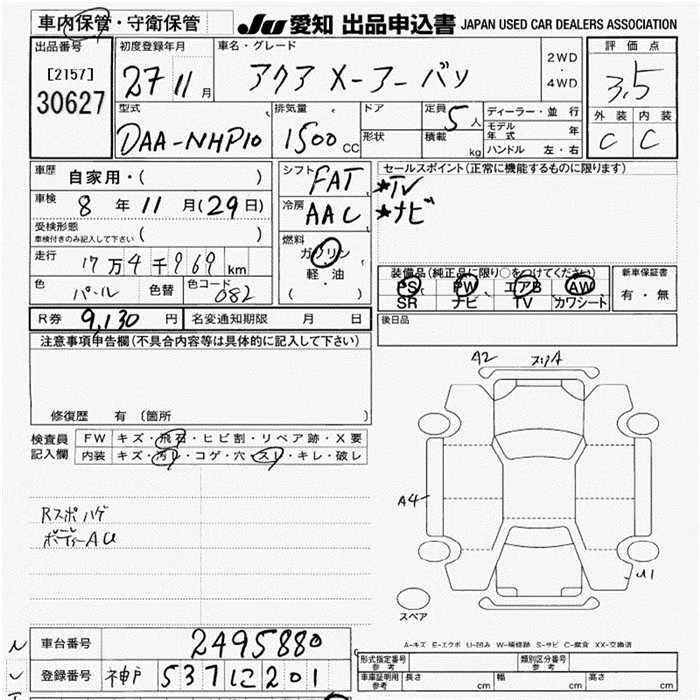 車内保管・守衛保管
JU 愛知 出品申込書 JAPAN USED CAR DEALERS ASSOCIATION
出品番号
[2157]
30627
初度登録年月
27 11月
車名・グレード
アクア X-アーバン
2WD
・
4WD
評価点
3.5
外装 内装
C C
型式
DAA-NHP10
排気量
1500 CC
ドア
形状
定員 5人
積載 kg
ディーラー・並行
モデル年式 年
ハンドル 左・右
車歴 自家用・( )
車検 8年 11月(29日)
受検形態
車検付きのみ記入して下さい ( )
走行 17万4千969km
色 パール 色替 色コード 082
シフト FAT
冷房 AAC
燃料
ガソリン
・
軽・油
( )
セールスポイント(正常に機能するものに限ります)
*TV
*ナビ
装備品(純正品に限り○をつけてください)
PS PW エアB AW
SR ナビ TV カワシート
新車保証書
有・無
R券 9,130円 名変通知期限 月 日
後日品
注意事項申告欄(不具合内容等は具体的に記入して下さい)
修復歴 有 〔箇所
検査員
記入欄
FW キズ・飛石・ヒビ割・リペア跡・X要
内装 キズ・汚レ・コゲ・穴・スレ・キレ・破レ
Rスポハゲ
ボディーAU
A2 スリA
A4
U1
スペア
A-キズ E-エクボ U-凹み W-補修跡 S-サビ C-腐食 XX-交換済
車台番号 2495880
登録番号 神戸 537 に 201
型式指定番号
参考
類別区分番号
参考
車庫証明用
参考
長さ cm 幅 cm 高さ cm